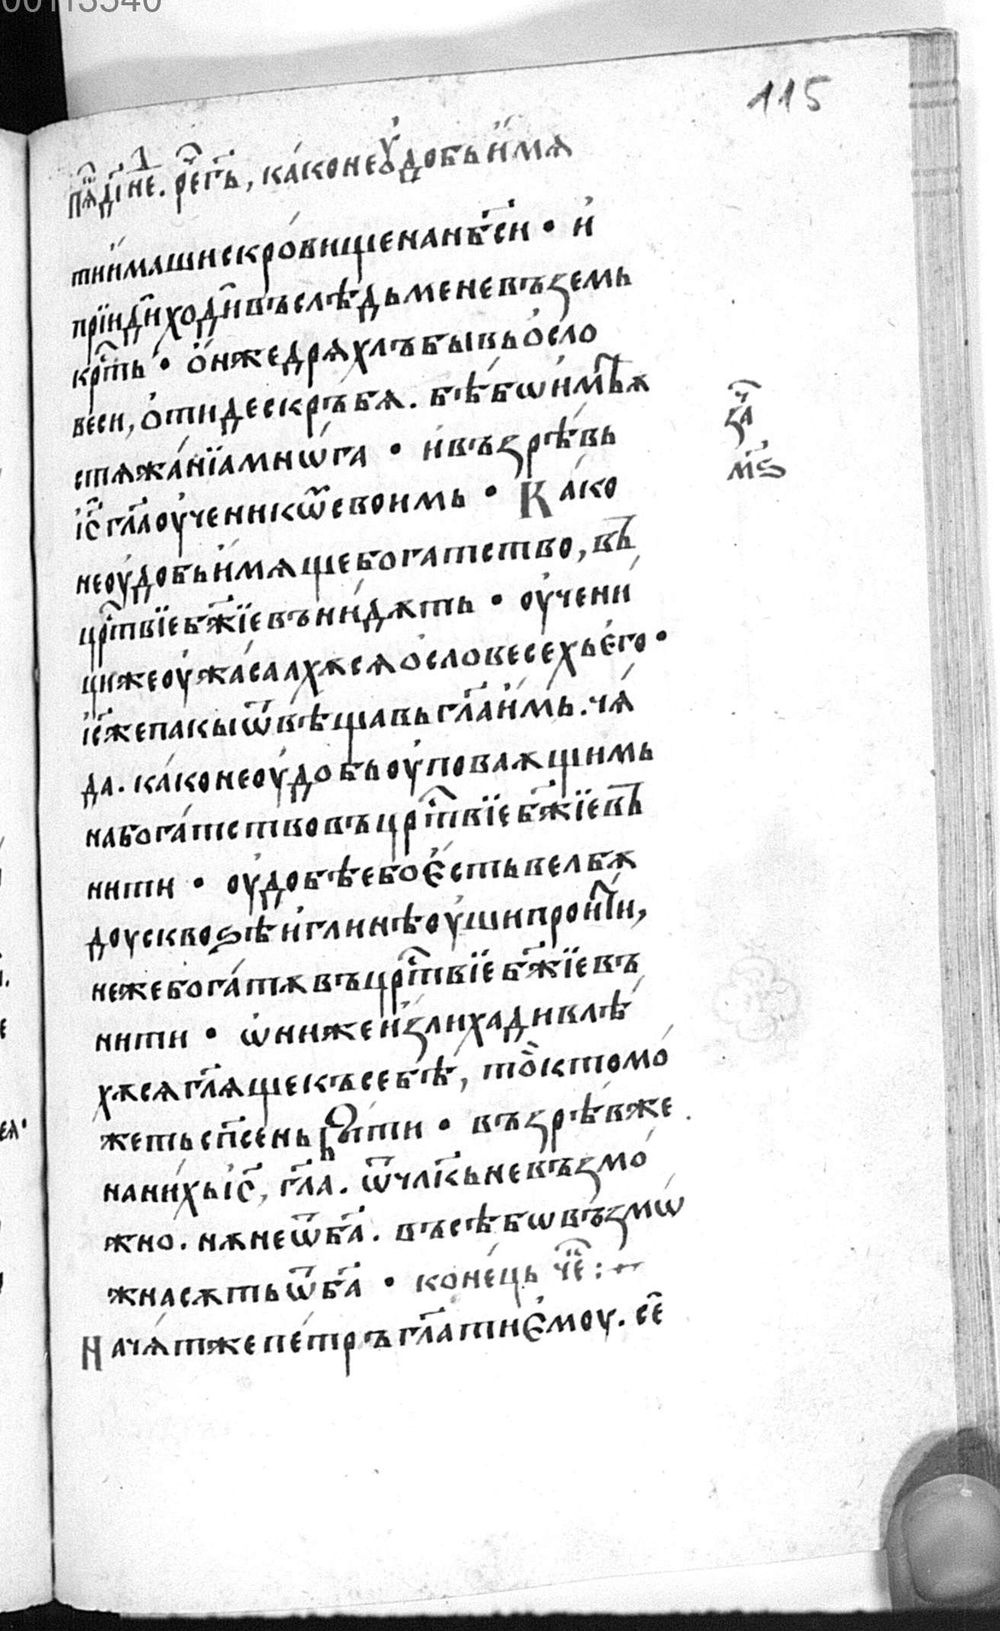 00113540
115
пѧ҃ дг҃і не҃. реч҃ гь҃, ка́ко неꙋ҆добь и҆мѧ
ти и҆маши скро́вище на нб҃си • и҆
прїиди ходи въ слѣдь мене въземь
кр҃ть • ѻ҆нже дрѧхлъ бывь о҆ сло
веси, ѻ҆тиде скръбѧ. бѣ бѡ и҆мѣѧ
стѧжа́нїа мнѡ́га • и҆ възрѣвь
і҆с҃ гл҃а оу҆ченикѡ҃ своимь • Ка́ко
неоу҆добь и҆мѧще богатство, въ
цр҃твїе бж҃їе вънидѫть • оу҆чени
ци же оу҆жа́саахѫсѧ о҆ словесехь е҆го •
і҆с҃ же пакы ѿвѣщавь гл҃а и҆мь. чѧ́
да. ка́ко неоу҆добь оу҆поваѫщимь
на бога́тство въ цр҃твїе бж҃їе въ
нити • оу҆добѣе бо є҆сть велбѫ
доу сквоѕѣ и҆глинѣ оу҆ши проити,
неже бога́тѫ въ цр҃твїе бж҃їе въ
нити • ѡ҆ни же и҆злиха дивлѣ
хѫсѧ гл҃ѧще къ себѣ, то̀ кто мо́
жеть сп҃сень быти • възрѣв же
на ни́хь і҆с҃, гл҃а. ѿ чл҃кь невъзмо́
жно. нѫ не ѿ ба҃. въсѣ бѡ възмѡ́
жна сѫть ѿ ба҃ • коне́ць че҃ :~
На чѧ́т же пе́тръ гл҃ати є҆моу. се
за҃
м҃ѕ